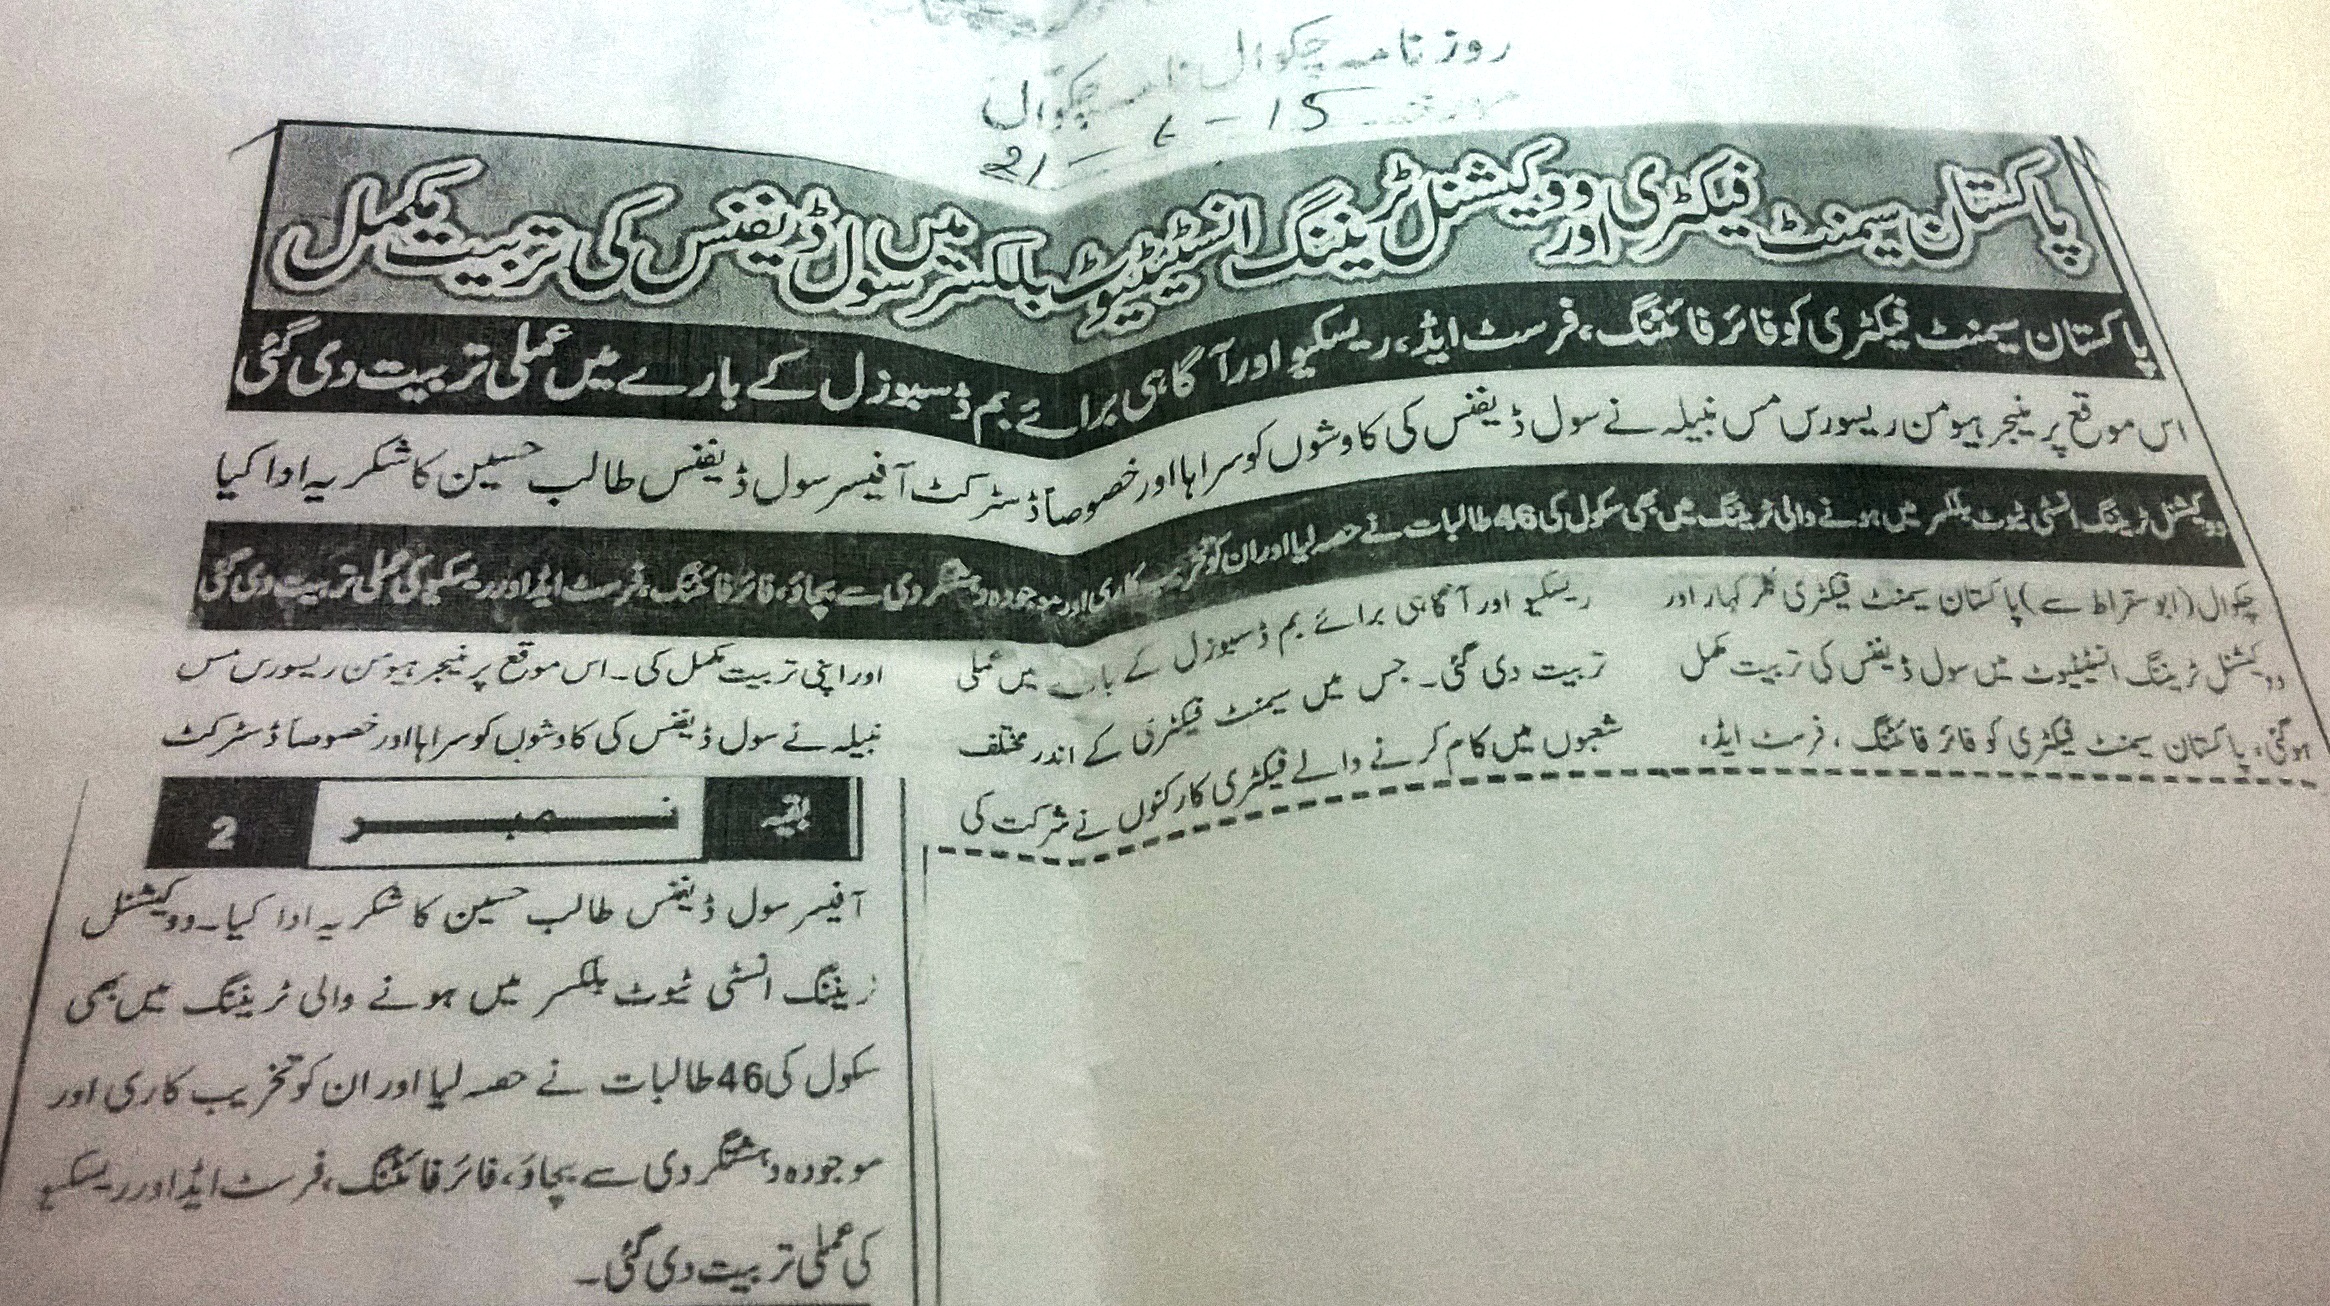 روزنامہ چکوال نامہ چکوال
21-6-15
پاکستان سیمنٹ فیکٹری اور ووکیشنل ٹریننگ انسٹیٹیوٹ بالکسر میں سول ڈیفنس کی تربیت مکمل
پاکستان سیمنٹ فیکٹری کو فائر فائٹنگ، فرسٹ ایڈ، ریسکیو اور آگاہی برائے بم ڈسپوزل کے بارے میں عملی تربیت دی گئی
اس موقع پر منیجر ہیومن ریسورس مس نبیلہ نے سول ڈیفنس کی کاوشوں کو سراہا اور خصوصاً ڈسٹرکٹ آفیسر سول ڈیفنس طالب حسین کا شکریہ ادا کیا
ووکیشنل ٹریننگ انسٹی ٹیوٹ بلکسر میں ہونے والی ٹریننگ میں بھی سکول کی 46 طالبات نے حصہ لیا اور ان کو تخریب کاری اور موجودہ دہشتگردی سے بچاؤ، فائر فائٹنگ، فرسٹ ایڈ اور ریسکیو کی عملی تربیت دی گئی
چکوال (ابوسقراط سے) پاکستان سیمنٹ فیکٹری کہار اور
ووکیشنل ٹریننگ انسٹیٹیوٹ میں سول ڈیفنس کی تربیت مکمل
ہوگئی، پاکستان سیمنٹ فیکٹری کو فائر فائٹنگ، فرسٹ ایڈ،
ریسکیو اور آگاہی برائے بم ڈسپوزل کے بارے میں عملی
تربیت دی گئی۔ جس میں سیمنٹ فیکٹری کے اندر مختلف
شعبوں میں کام کرنے والے فیکٹری کارکنوں نے شرکت کی
اور اپنی تربیت مکمل کی۔ اس موقع پر منیجر ہیومن ریسورس مس
نبیلہ نے سول ڈیفنس کی کاوشوں کو سراہا اور خصوصاً ڈسٹرکٹ
بقیہ نمبر 2
آفیسر سول ڈیفنس طالب حسین کا شکریہ ادا کیا۔ ووکیشنل
ٹریننگ انسٹی ٹیوٹ بلکسر میں ہونے والی ٹریننگ میں بھی
سکول کی 46 طالبات نے حصہ لیا اور ان کو تخریب کاری اور
موجودہ دہشتگردی سے بچاؤ، فائر فائٹنگ، فرسٹ ایڈ اور ریسکیو
کی عملی تربیت دی گئی۔